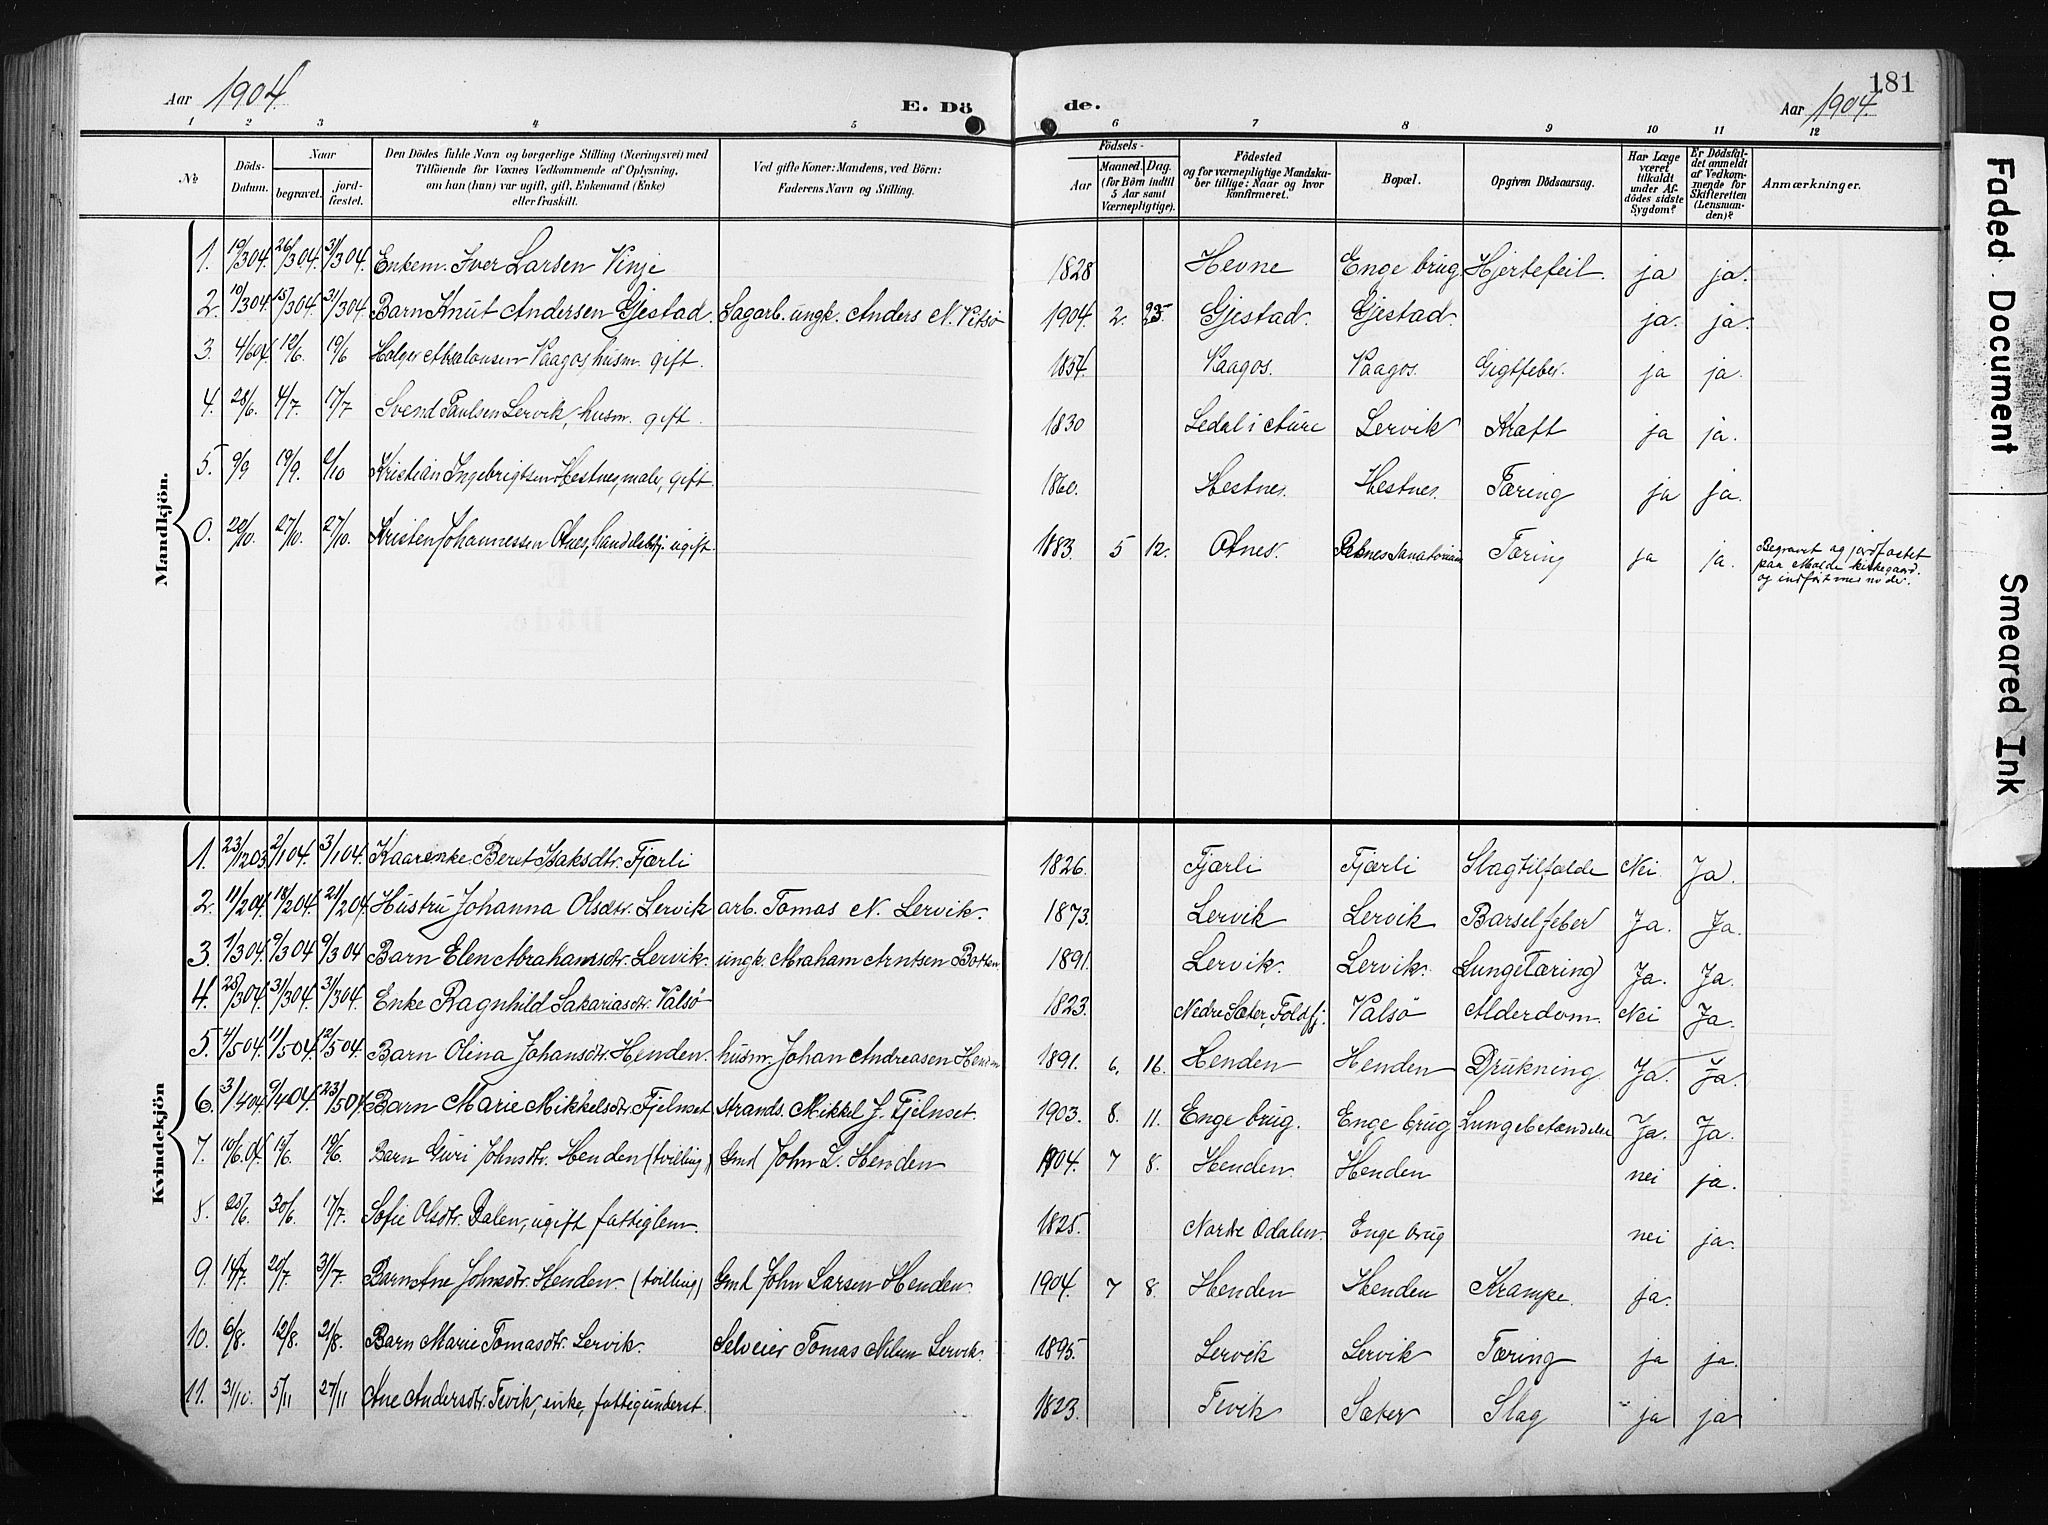 Aar 1904.
E. Döde.
181
Aar 1904.
1 2 3 4 5 6 7 8 9 10 11 12
№
Döds-Datum.
Naar
begravet.
jord-fæstet.
Den Dödes fulde Navn og borgerlige Stilling (Næringsvei) med
Tilföiende for Voxnes Vedkommende af Oplysning,
om han (hun) var ugift, gift, Enkemand (Enke)
eller fraskilt.
Ved gifte Koner: Mandens, ved Börn:
Faderens Navn og Stilling.
Födsels-
Aar
Maaned. Dag.
(for Börn indtil
5 Aar samt
Værnepligtige).
Födested
og for værnepligtige Mandska-
ber tillige: Naar og hvor
konfirmeret.
Bopæl.
Opgiven Dödsaarsag.
Har Læge
været
tilkaldt
under Af-
dödes sidste
Sygdom?
Er Dödsfal-
det anmeldt
af Vedkom-
mende for
Skifteretten
(Lensman-
den)?
Anmærkninger.
Mandkjön.
1. 19/3 04. 26/3 04. 31/3 04. Enkem. Iver Larsen Vinje 1828 Hevne Enge brug Hjertefeil. ja ja.
2. 19/3 04. 15/3 04. 31/3 04. Barn Knut Andersen Gjestad. Sagarb. ungk. Anders N. Vitsö 1904. 2. 25. Gjestad. Gjestad. ja. ja.
3. 4/6 04. 12/6. 19/6 Holger Absalonsen Vaagos, husm. gift. 1854. Vaagos. Vaagos. Gigtfeber. ja ja.
4. 28/6. 4/7. 17/7 Svend Paulsen Lervik, husm. gift. 1830 Sedal i Aure Lervik Kræft ja ja.
5. 9/9 19/9. 9/10 Kristian Ingebrigtsen Hestnes, maler, gift. 1860. Hestnes. Hestnes. Tæring ja ja.
0. 22/10. 27/10. 27/10. Kristen Johannessen Otnes, handelsbtj. ugift. 1883. 5 12. Otnes. Reknes Sanatorium Tæring ja ja. Begravet og jordfæstet
paa Molde kirkegaard.
og indført med no der.
Kvindekjön
1. 23/12 03. 2/1 04. 3/1 04. Kaarenke Beret Isaksdtr. Fjærli 1826. Fjærli Fjærli Slagtilfælde Nei Ja.
2. 11/2 04. 18/2 04. 21/2 04. Hustru Johanna Olsdtr. Lervik arb. Tomas N. Lervik. 1873. Lervik Lervik Barselfeber Ja. Ja.
3. 1/3 04. 9/3 04 9/3 04 Barn Elen Abrahamsdtr. Lervik. ungk. Abraham Arntsen Botten 1891. Lervik. Lervik. Lungetæring Ja. Ja.
4. 25/3 04. 31/3 04. 31/3 04. Enke Ragnhild Sakariasdtr. Valsö 1823. Nedre Sæter, Foldfj. Valsö Alderdom. Nei Ja.
5. 4/5 04. 11/5 04. 12/5 04. Barn Olina Johansdtr. Henden. husm. Johan Andreasen Henden 1891. 6. 16. Henden Henden Drukning. Ja. Ja.
6. 3/4 04. 9/4 04. 23/5 04. Barn Marie Mikkelsdtr. Fjelnset strands. Mikkel J. Fjelnset. 1903. 8. 11. Enge brug. Enge brug Lungebetændelse Ja. Ja.
7. 12/6 04. 19/6. 19/6. Barn Guri Johnsdtr. Henden (tvilling) Gmd John L. Henden 1904. 7 8. Henden. Henden nei ja.
8. 25/6. 30/6. 17/7. Sofie Olsdtr. Dalen, ugift fattiglem. 1825. Nordre Odalen. Enge brug nei ja.
9. 14/7. 20/7. 31/7. Barn Ane Johnsdtr. Henden. (tvilling) Gmd John Larsen Henden. 1904. 7 8. Henden Henden Krampe. ja.
10. 6/8. 12/8. 21/8. Barn Marie Tomasdtr. Lervik. Selveier Tomas Nilsen Lervik. 1895. Lervik Lervik Tæring ja ja.
11. 31/10. 5/11 27/11 Ane Andersdtr. Tevik, enke, fattigunderst. 1823. Tevik Sæter Slag ja ja
Faded Document
Smeared Ink